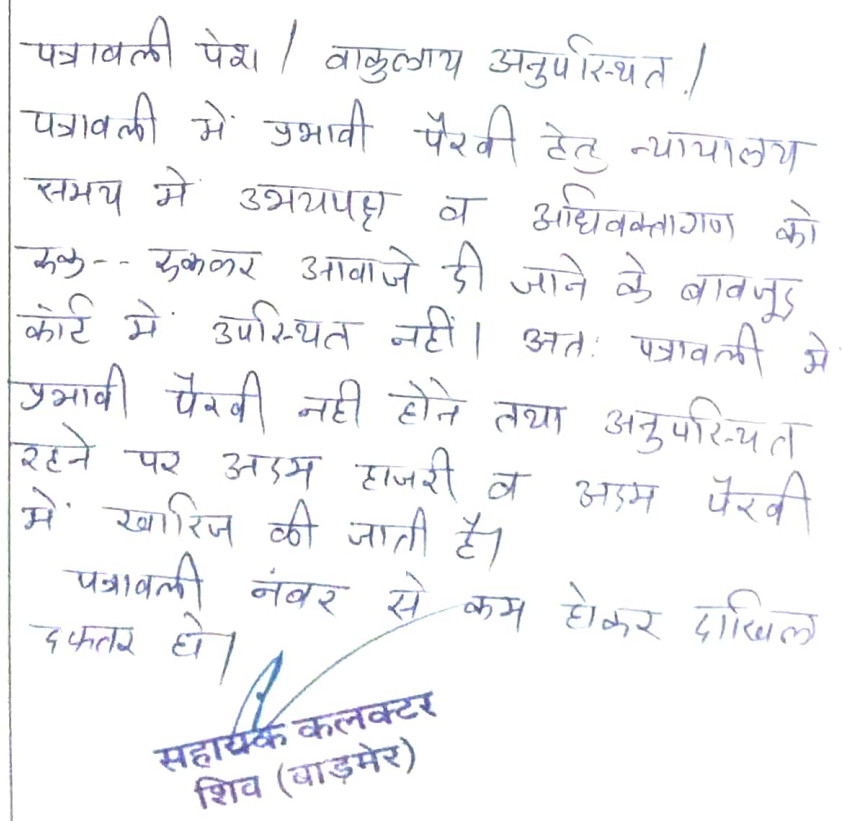 पत्रावली पेश। वाकुलाय अनुपस्थित।
पत्रावली में प्रभावी पैरवी हेतु न्यायालय
समय में उभयपक्ष व अधिवक्तागण को
रुक-- रुककर आवाजे दी जाने के बावजूद
कोर्ट में उपस्थित नहीं। अतः पत्रावली में
प्रभावी पैरवी नही होने तथा अनुपस्थित
रहने पर अदम हाजरी व अदम पैरवी
में खारिज की जाती है।
पत्रावली नंबर से कम होकर दाखिल
दफतर हो।
सहायक कलक्टर
शिव (बाड़मेर)